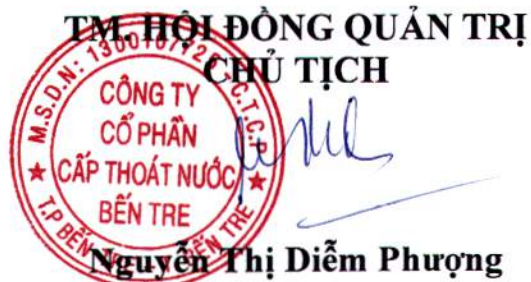 TM. HỘI ĐỒNG QUẢN TRỊ
CHỦ TỊCH
M.S.D.N: C.T.C.P
CÔNG TY
CỔ PHẦN
CẤP THOÁT NƯỚC
BẾN TRE
T.P BẾN TRE
Nguyễn Thị Diễm Phượng